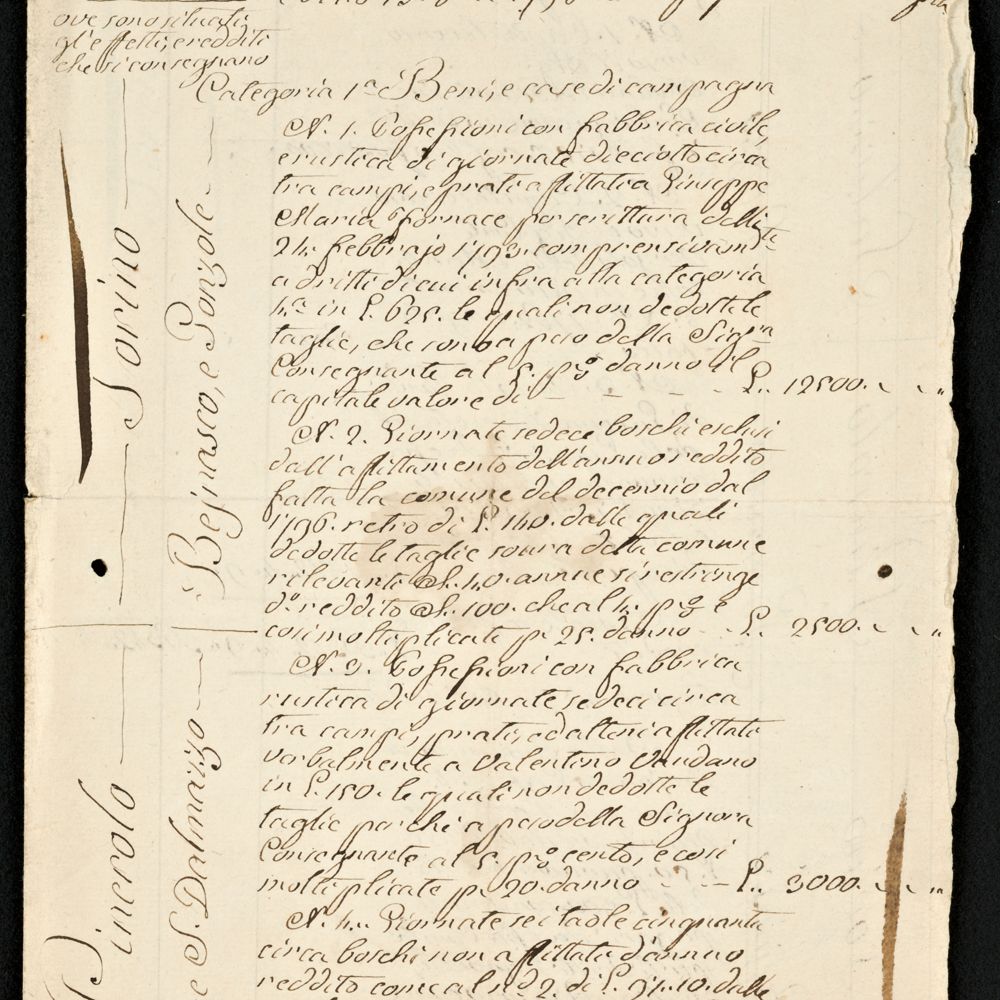 ove sono situati
gl'effetti, e redditi
che si consegnano
Categoria 1.a Beni, e case di campagna
N. 1. Possessioni con fabbrica civile,
e rustica di giornate dieciotto circa
tra campi, e prati affittati a Giuseppe
Maria Fornace per scrittura delli
24. Febbrajo 1793. comprensivam.te
a dritti di cui infra alla categoria
4.a in L. 625. le quali non dedotte le
taglie, che sono a peso della Sig.ra
Consegnante al 5. p.% danno il
capitale valore di - - - - L. 12500. " "
N. 2. Giornate sedeci boschi esclusi
dall'affittamento dell'annuo reddito
fatta la comune del decennio dal
1796. retro di L. 140. dalle quali
dedotte le taglie sovra detta comune
rilevanti a L. 40. annue si restringe
d.o reddito a L. 100. che al 4. p.% e
così moltiplicate p. 25. danno - - L. 2500. " "
N. 3. Possessioni con fabbrica
rustica di giornate sedeci circa
tra campi, prati, ed alteni affittati
verbalmente a Valentino Vaudano
in L. 150. le quali non dedotte le
taglie perchè a peso della Signora
Consegnante al 5. p.% cento, e così
moltiplicate p. 20. danno - - L. 3000. " "
N. 4. Giornate sei tavole cinquanta
circa boschi non affittati d'annuo
reddito come al n.o 2. di L. 91.10. dalle
Torino
Beinasco, e Gonzole
Pinerolo
e S. Dalmazzo